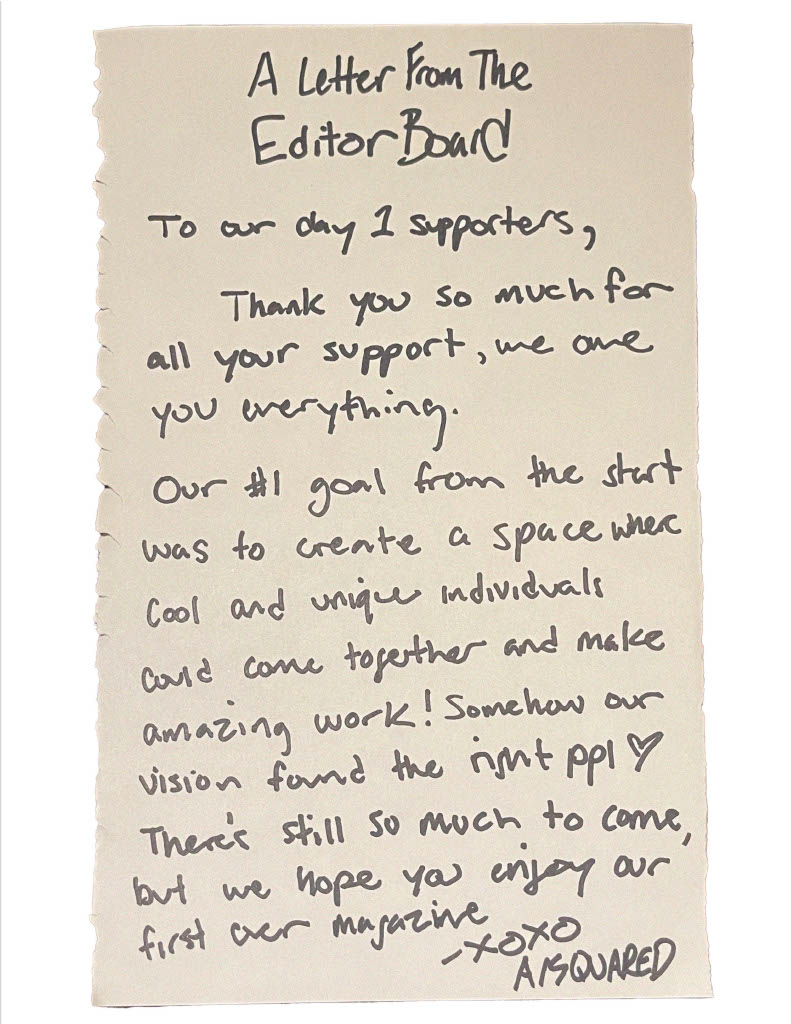 A Letter From The
Editor Board
To our day 1 supporters,
Thank you so much for
all your support, we owe
you everything.
Our #1 goal from the start
was to create a space where
cool and unique individuals
could come together and make
amazing work! Somehow our
vision found the right ppl ♡
There's still so much to come,
but we hope you enjoy our
first ever magazine
-XOXO
A/SQUARED